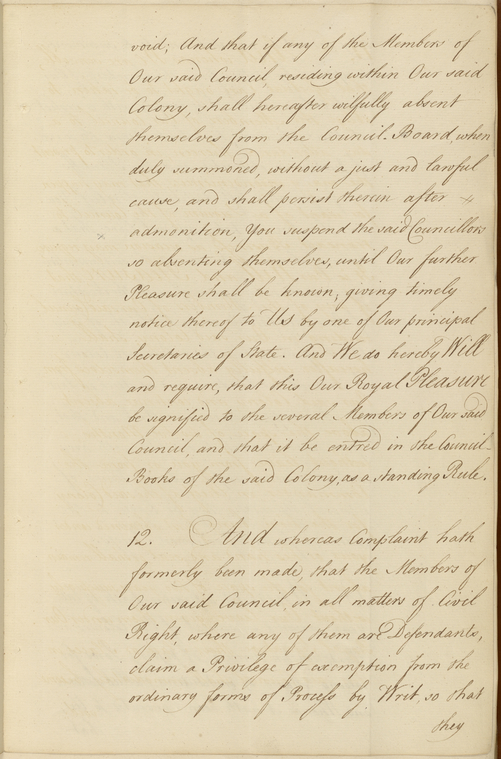 void; And that if any of the Members of
Our said Council, residing within Our said
Colony, shall hereafter wilfully absent
themselves from the Council-Board, when
duly summoned, without a just and lawful
cause, and shall persist therein after
admonition, You suspend the said Councillors
so absenting themselves, until Our further
Pleasure shall be known, giving timely
notice thereof to Us by one of Our principal
Secretaries of State. And We do hereby Will
and require, that this Our Royal Pleasure
be signified to the several Members of Our said
Council, and that it be entred in the Council-
Books of the said Colony, as a standing Rule.
12. And whereas Complaint hath
formerly been made, that the Members of
Our said Council, in all matters of Civil
Right, where any of them are Defendants,
claim a Privilege of exemption from the
ordinary forms of Process by Writ, so that
they